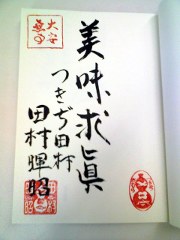 美味求眞
つきぢ田村
田村暉昭
大安